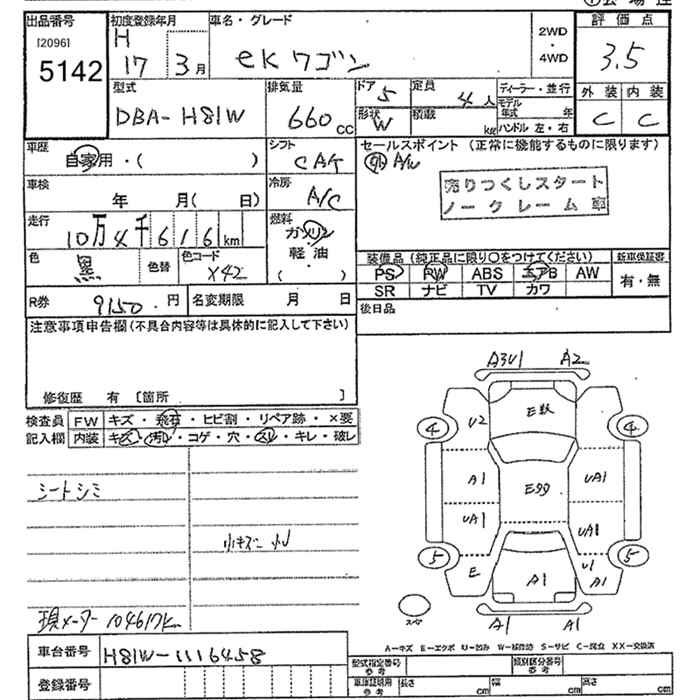 出品番号 初度登録年月 車名・グレード 評価点
[2096] H 2WD
5142 17 3月 eKワゴン ・ 3.5
4WD
型式 排気量 ドア 5 定員 ディーラー・並行 外装 内装
DBA-H81W 660cc 形状 W 4人 モデル年式 年 C C
積載 kg ハンドル 左・右
車歴 シフト セールスポイント(正常に機能するものに限ります)
自家用・( ) CAT 外A/W
車検 冷房 売りつくしスタート
年 月( 日) A/C ノークレーム車
走行 燃料
10万4千616km ガソリン
色 色替 色コード 軽油 装備品(純正品に限り○をつけてください) 新車保証書
黒 X42 ( ) PS PW ABS エアB AW 有・無
R券 9150円 名変期限 月 日 SR ナビ TV カワ
後日品
注意事項申告欄(不具合内容等は具体的に記入して下さい)
修復歴 有 [箇所 ]
検査員 FW キズ・飛石・ヒビ割・リペア跡・×要
記入欄 内装 キズ・汚れ・コゲ・穴・スレ・キレ・破レ
シートシミ
小キズ 小U
現メーター 104617k
車台番号 H81W-1116458
登録番号
A3U1 A2
E数
4 U2 4
A1 E99 UA1
UA1 UA1
5 E A1 U1 A1 5
スペア A1 A1
A-キズ E-エクボ U-凹み W-補修跡 S-サビ C-腐食 XX-交換済
型式指定番号 参考 類別区分番号 参考
車庫証明用 参考 長さ cm 幅 cm 高さ cm